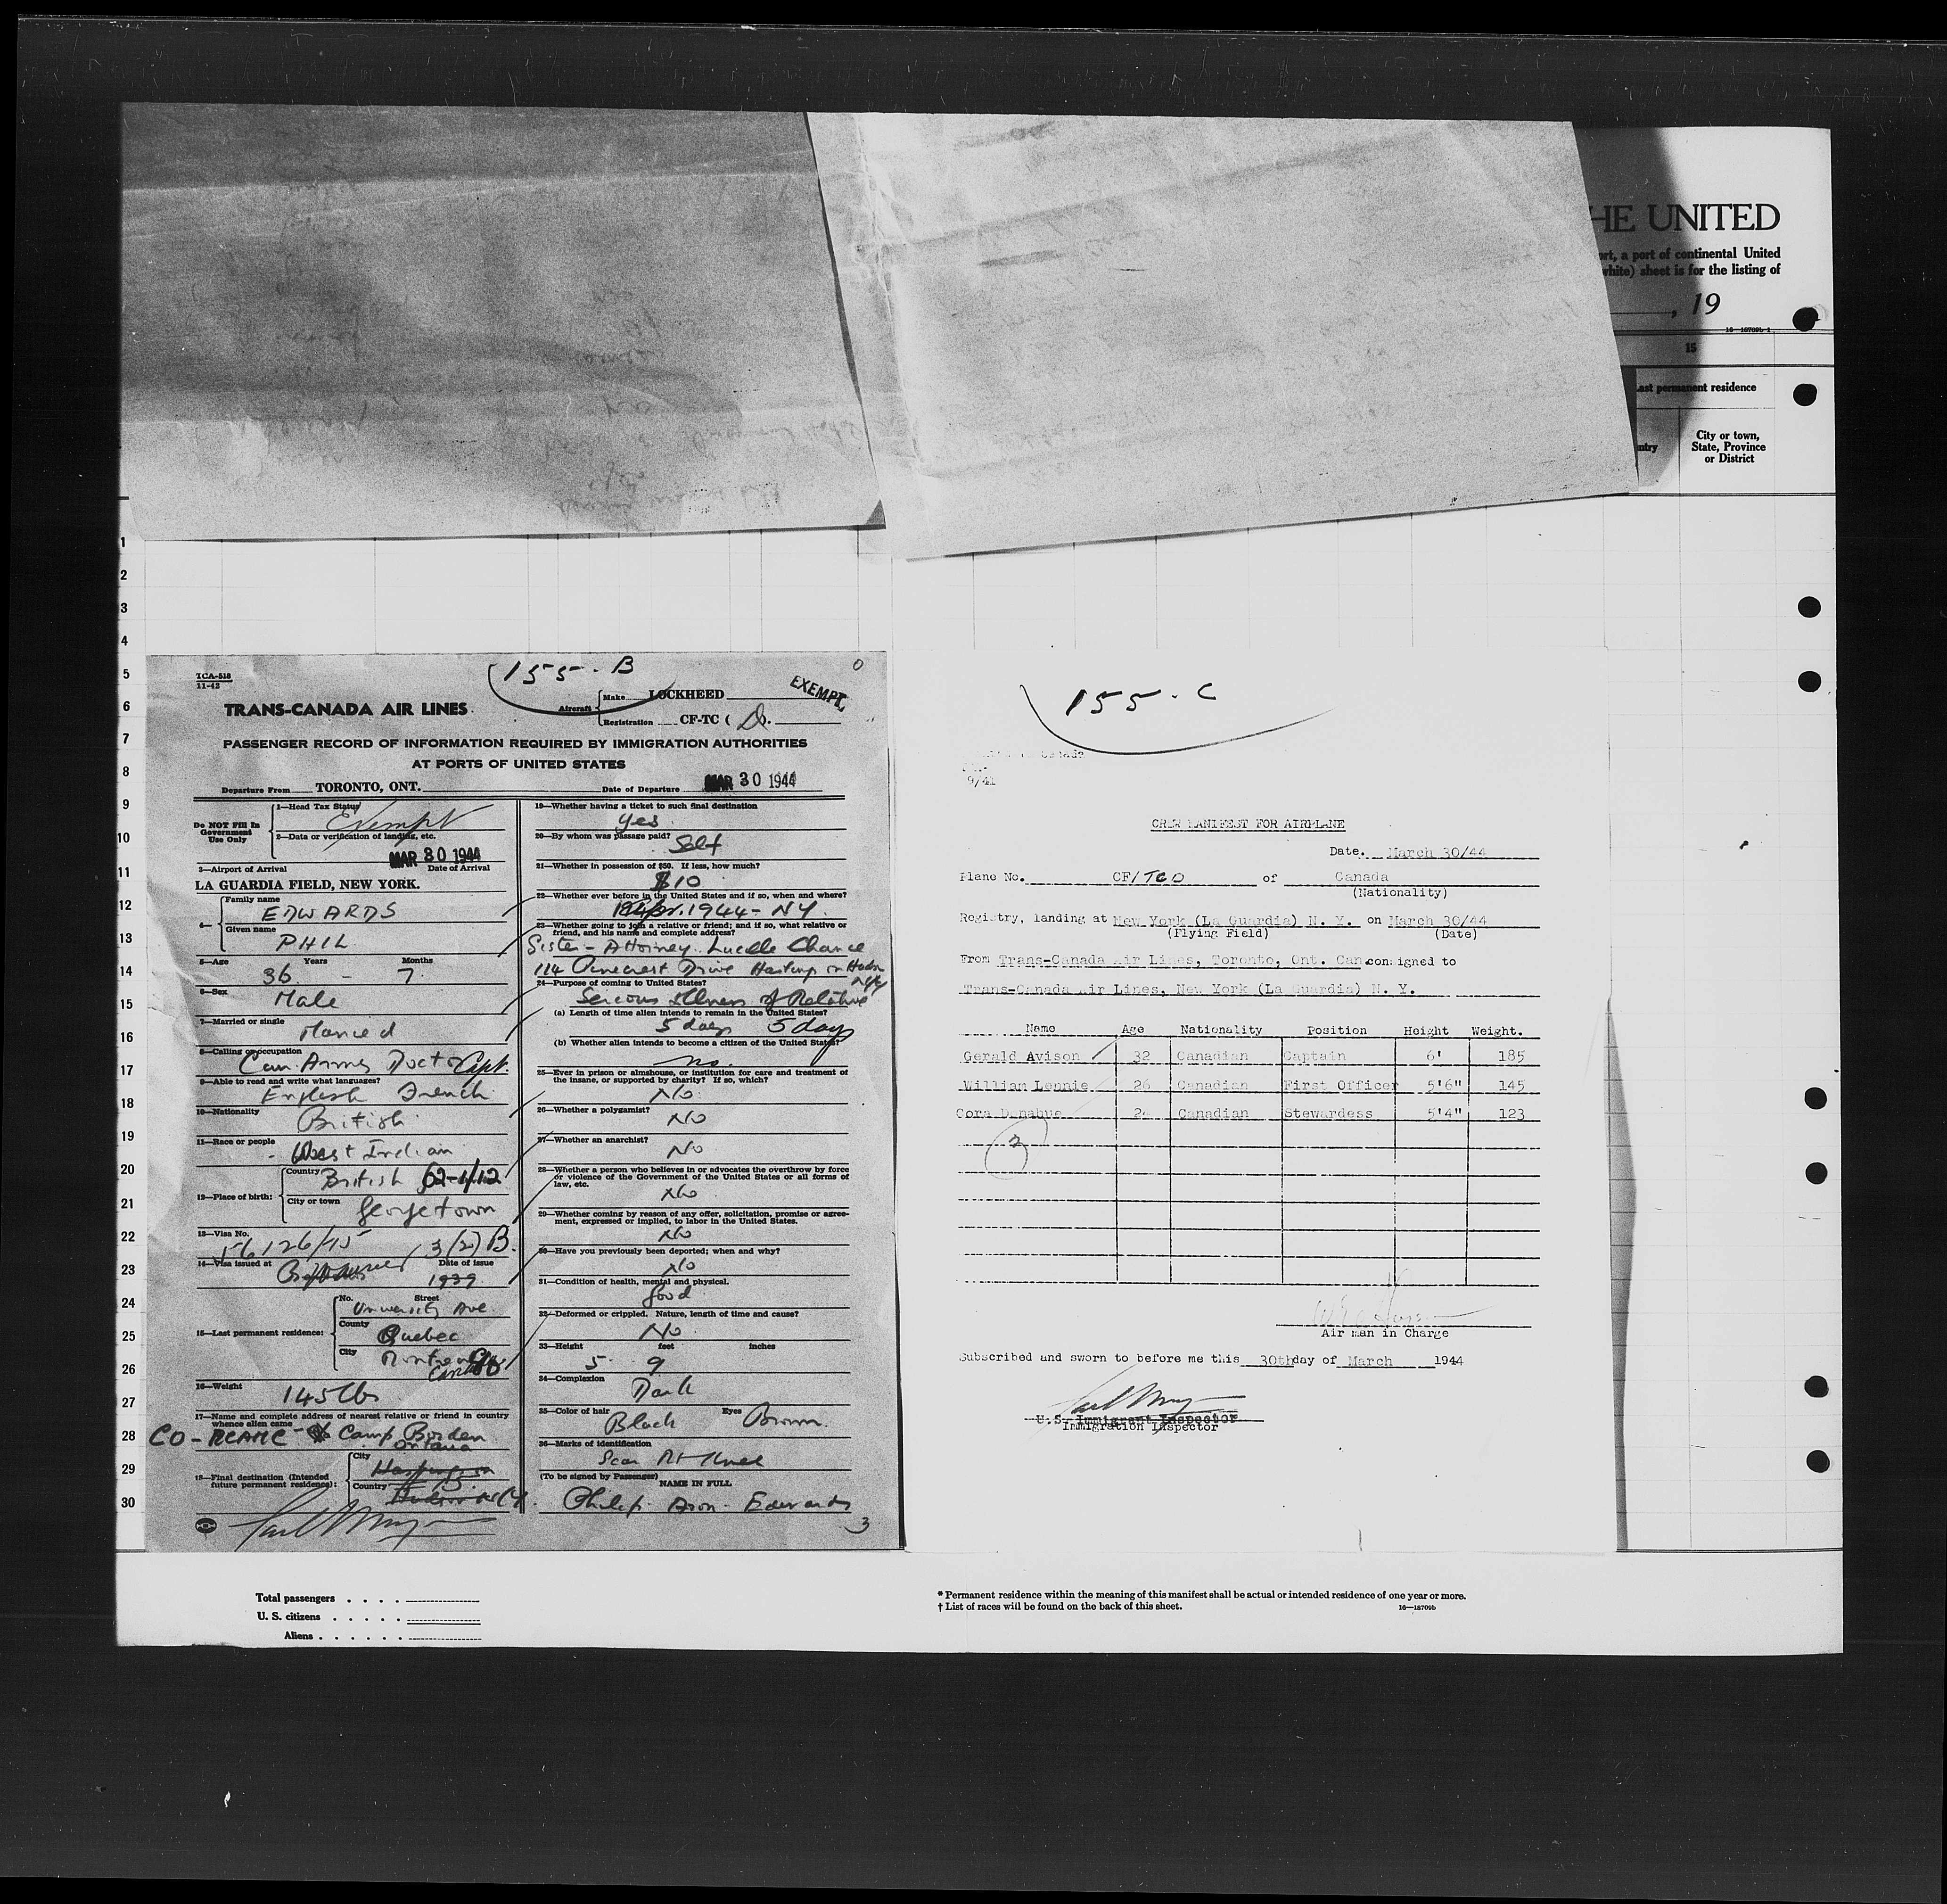 HE UNITED
ort, a port of continental United
white) sheet is for the listing of
, 19
16—18709b-1
15
ast permanent residence
ntry
City or town,
State, Province
or District
1
2
3
4
5
6
7
8
9
10
11
12
13
14
15
16
17
18
19
20
21
22
23
24
25
26
27
28
29
30
155-B
0
TCA-518
11-42
TRANS-CANADA AIR LINES
Aircraft
Make LOCKHEED
EXEMPT
Registration CF-TC (D).
PASSENGER RECORD OF INFORMATION REQUIRED BY IMMIGRATION AUTHORITIES
AT PORTS OF UNITED STATES
Departure From TORONTO, ONT. Date of Departure MAR 30 1944
Do NOT Fill In
Government
Use Only
1—Head Tax Status
Exempt
2—Data or verification of landing, etc.
MAR 30 1944
3—Airport of Arrival Date of Arrival
LA GUARDIA FIELD, NEW YORK.
4—
Family name
EDWARDS
Given name
PHIL
5—Age Years Months
36 - 7
6—Sex
Male
7—Married or single
Married
8—Calling or occupation
Can. Army Doctor Capt.
9—Able to read and write what languages?
English French
10—Nationality
British
11—Race or people
- West Indian
12—Place of birth:
Country
British
City or town
Georgetown
13—Visa No.
56126/75 3(2) B.
14—Visa issued at Date of issue
1939
15—Last permanent residence:
No. Street
University Ave.
County
Quebec
City
Montreal
Canada
16—Weight
145 lbs
17—Name and complete address of nearest relative or friend in country
whence alien came
CO - RCAMC - Camp Borden
Ontario
18—Final destination (Intended
future permanent residence):
City
Hastings on
Country
Hudson
19—Whether having a ticket to such final destination
yes
20—By whom was passage paid?
Self
21—Whether in possession of $50. If less, how much?
$10
22—Whether ever before in the United States and if so, when and where?
1944 - NY.
23—Whether going to join a relative or friend; and if so, what relative or
friend, and his name and complete address?
Sister - Attorney. Lucille Chance
114 Pinecrest Drive Hastings on Hudson
NY
24—Purpose of coming to United States?
Serious Illness of Relative
(a) Length of time alien intends to remain in the United States?
5 days 5 days
(b) Whether alien intends to become a citizen of the United States?
no.
25—Ever in prison or almshouse, or institution for care and treatment of
the insane, or supported by charity? If so, which?
No
26—Whether a polygamist?
No
27—Whether an anarchist?
No
28—Whether a person who believes in or advocates the overthrow by force
or violence of the Government of the United States or all forms of
law, etc.
No
29—Whether coming by reason of any offer, solicitation, promise or agree-
ment, expressed or implied, to labor in the United States.
No
30—Have you previously been deported; when and why?
No
31—Condition of health, mental and physical.
Good
32—Deformed or crippled. Nature, length of time and cause?
No
33—Height feet inches
5 9
34—Complexion
Dark
35—Color of hair Eyes
Black Brown.
36—Marks of identification
Scar Rt Knee
(To be signed by Passenger) NAME IN FULL
Philip Aron Edwards
3
155-C
Canada
9/41
CREW MANIFEST FOR AIRPLANE
Date. March 30/44
Plane No. CF/TCD of Canada
(Nationality)
Registry, landing at New York (La Guardia) N. Y. on March 30/44
(Flying Field) (Date)
From Trans-Canada Air Lines, Toronto, Ont. Can. consigned to
Trans-Canada Air Lines, New York (La Guardia) N. Y.
Name Age Nationality Position Height Weight.
Gerald Avison 32 Canadian Captain 6' 185
William Lennie 26 Canadian First Officer 5'6" 145
Cora Donahue Canadian Stewardess 5'4" 123
3
Air man in Charge
Subscribed and sworn to before me this 30th day of March 1944
U.S. Immigrant Inspector
Immigration Inspector
Total passengers . . . .
U. S. citizens . . . . .
Aliens . . . . . .
* Permanent residence within the meaning of this manifest shall be actual or intended residence of one year or more.
† List of races will be found on the back of this sheet.
16—18709b